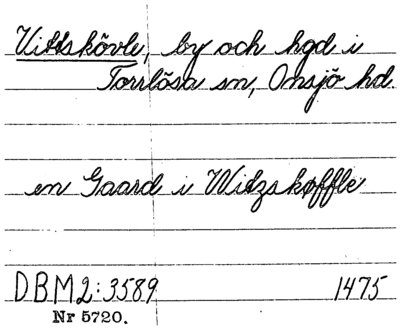 Vittskövle, by och hgd i
Torrlösa sn, Onsjö hd.
en Gaard i Witzskøffle
DBM2:3589 1475
Nr 5720.